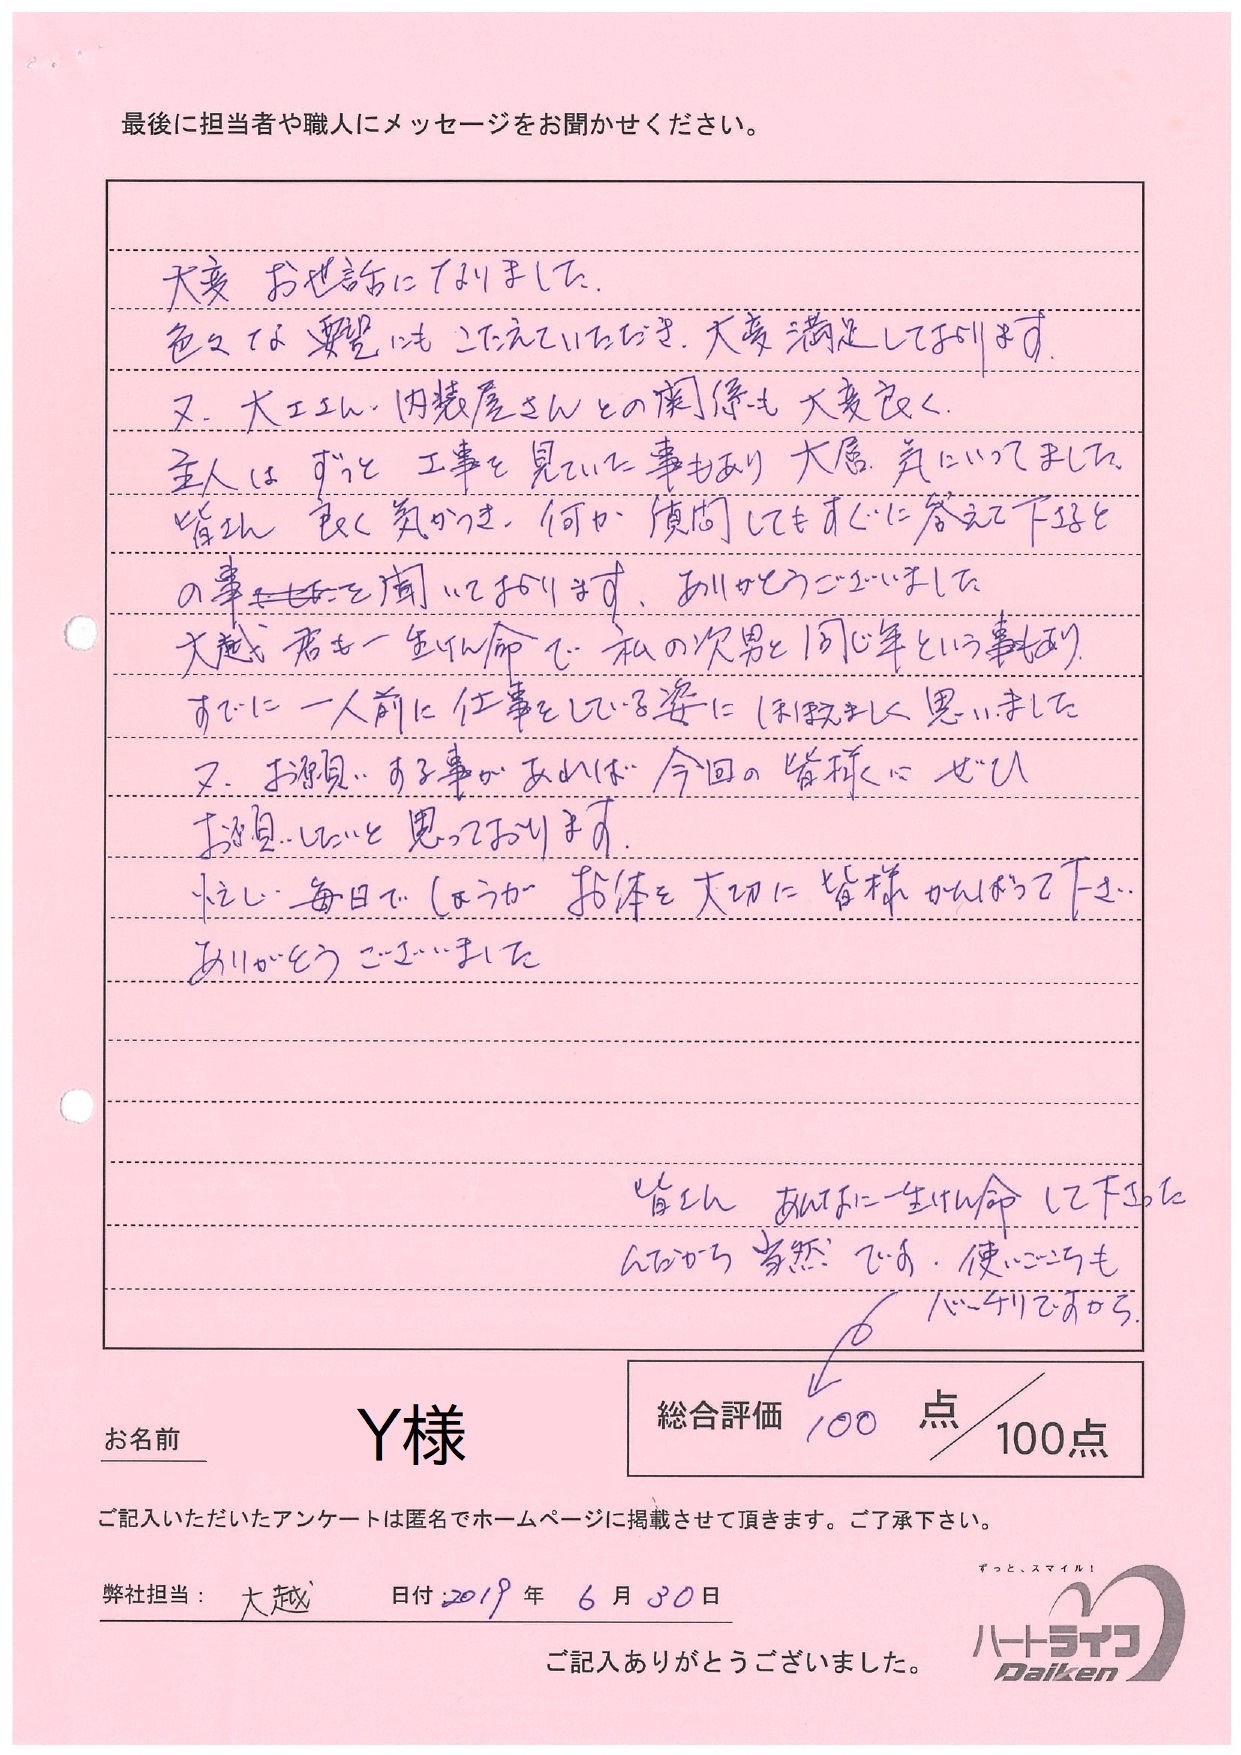 最後に担当者や職人にメッセージをお聞かせください。
大変 お世話になりました.
色々な 要望にもこたえていただき. 大変満足しております.
又. 大工さん. 内装屋さんとの関係も 大変良く.
主人は ずっと 工事を 見ていた事もあり 大層. 気にいってました.
皆さん 良く気がつき. 何か 質問してもすぐに答えて下さると
の事を聞いております. ありがとうございました
大越君も一生けん命で 私の次男と同じ年という事もあり.
すでに 一人前に仕事をしている姿に ほほえましく 思いました
又. お願いする事があれば 今回の 皆様々に ぜひ
お願いしたいと思っております.
忙しい 毎日でしょうが お体を大切に 皆様がんばって下さい.
ありがとうございました
皆さん あんなに一生けん命 して下さった
んだから 当然です. 使いごこちも
バッチリですから.
お名前 Y様
総合評価 100 点/100点
ご記入いただいたアンケートは匿名でホームページに掲載させて頂きます。ご了承下さい。
弊社担当: 大越 日付 2019 年 6 月 30 日
ずっと、スマイル!
ハートライフ
Daiken
ご記入ありがとうございました。